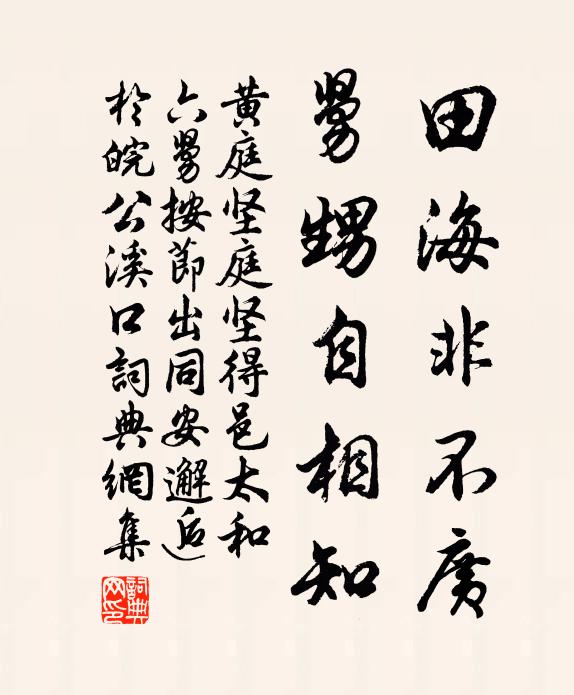 田海非不廣
舅甥自相知
黃庭坚庭坚得邑太和
六舅按節出同安邂逅
於皖公溪口詞典網集
詞典
网印